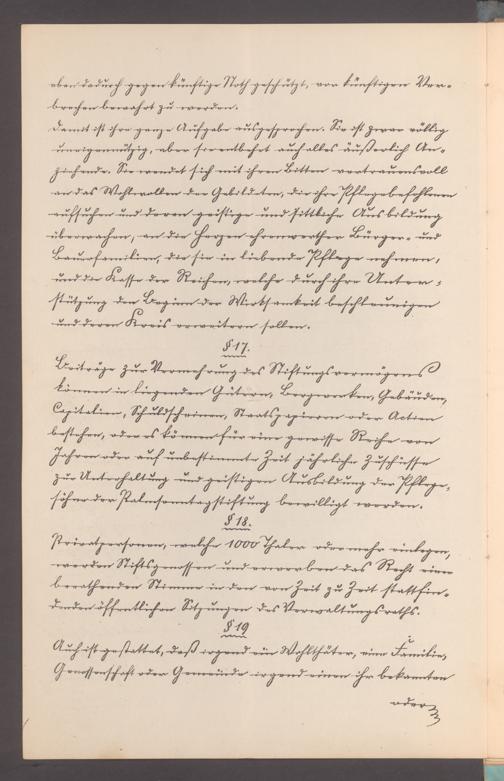 eben dadurch gegen künftige Noth geschützt, vor künftigen Ver-
brechen bewahrt zu werden.
Damit ist ihre ganze Aufgabe ausgesprochen. Sie ist zwar völlig
uneigennützig, aber sie entbehrt auch alles äußerlich An-
ziehende. Sie wendet sich mit ihren Bitten vertrauensvoll
an das Wohlwollen der Gebildeten, die ihre Pflegebefohlenen
aufsuchen und deren geistige und sittliche Ausbildung
überwachen, an die Herzen ehrenwerther Bürger- und
Bauerfamilien, die sie in liebende Pflege nehmen,
und die Kasse der Reichen, welche durch ihre Unter-
stützung den Beginn der Wirksamkeit beschleunigen
und deren Kreis erweitern sollen.
§ 17.
Beiträge zur Vermehrung des Stiftungsvermögens
können in liegenden Gütern, Bergwerken, Gebäuden,
Capitalien, Schuldscheinen, Staatspapieren oder Actien
bestehen, oder es können für eine gewisse Reihe von
Jahren oder auf unbestimmte Zeit jährliche Zuschüsse
zur Unterhaltung und geistigen Ausbildung der Pflege-
söhne der Palmsonntagstiftung bewilligt werden.
§ 18.
Privatpersonen, welche 1000 Thaler oder mehr einlegen,
werden Stiftsgenossen und erwerben das Recht einer
berathenden Stimme in den von Zeit zu Zeit stattfin-
denden öffentlichen Sitzungen des Verwaltungsraths.
§ 19
Auch ist gestattet, daß irgend ein Wohlthäter, eine Familie,
Genossenschaft oder Gemeinde irgend einen ihr bekannten
oder